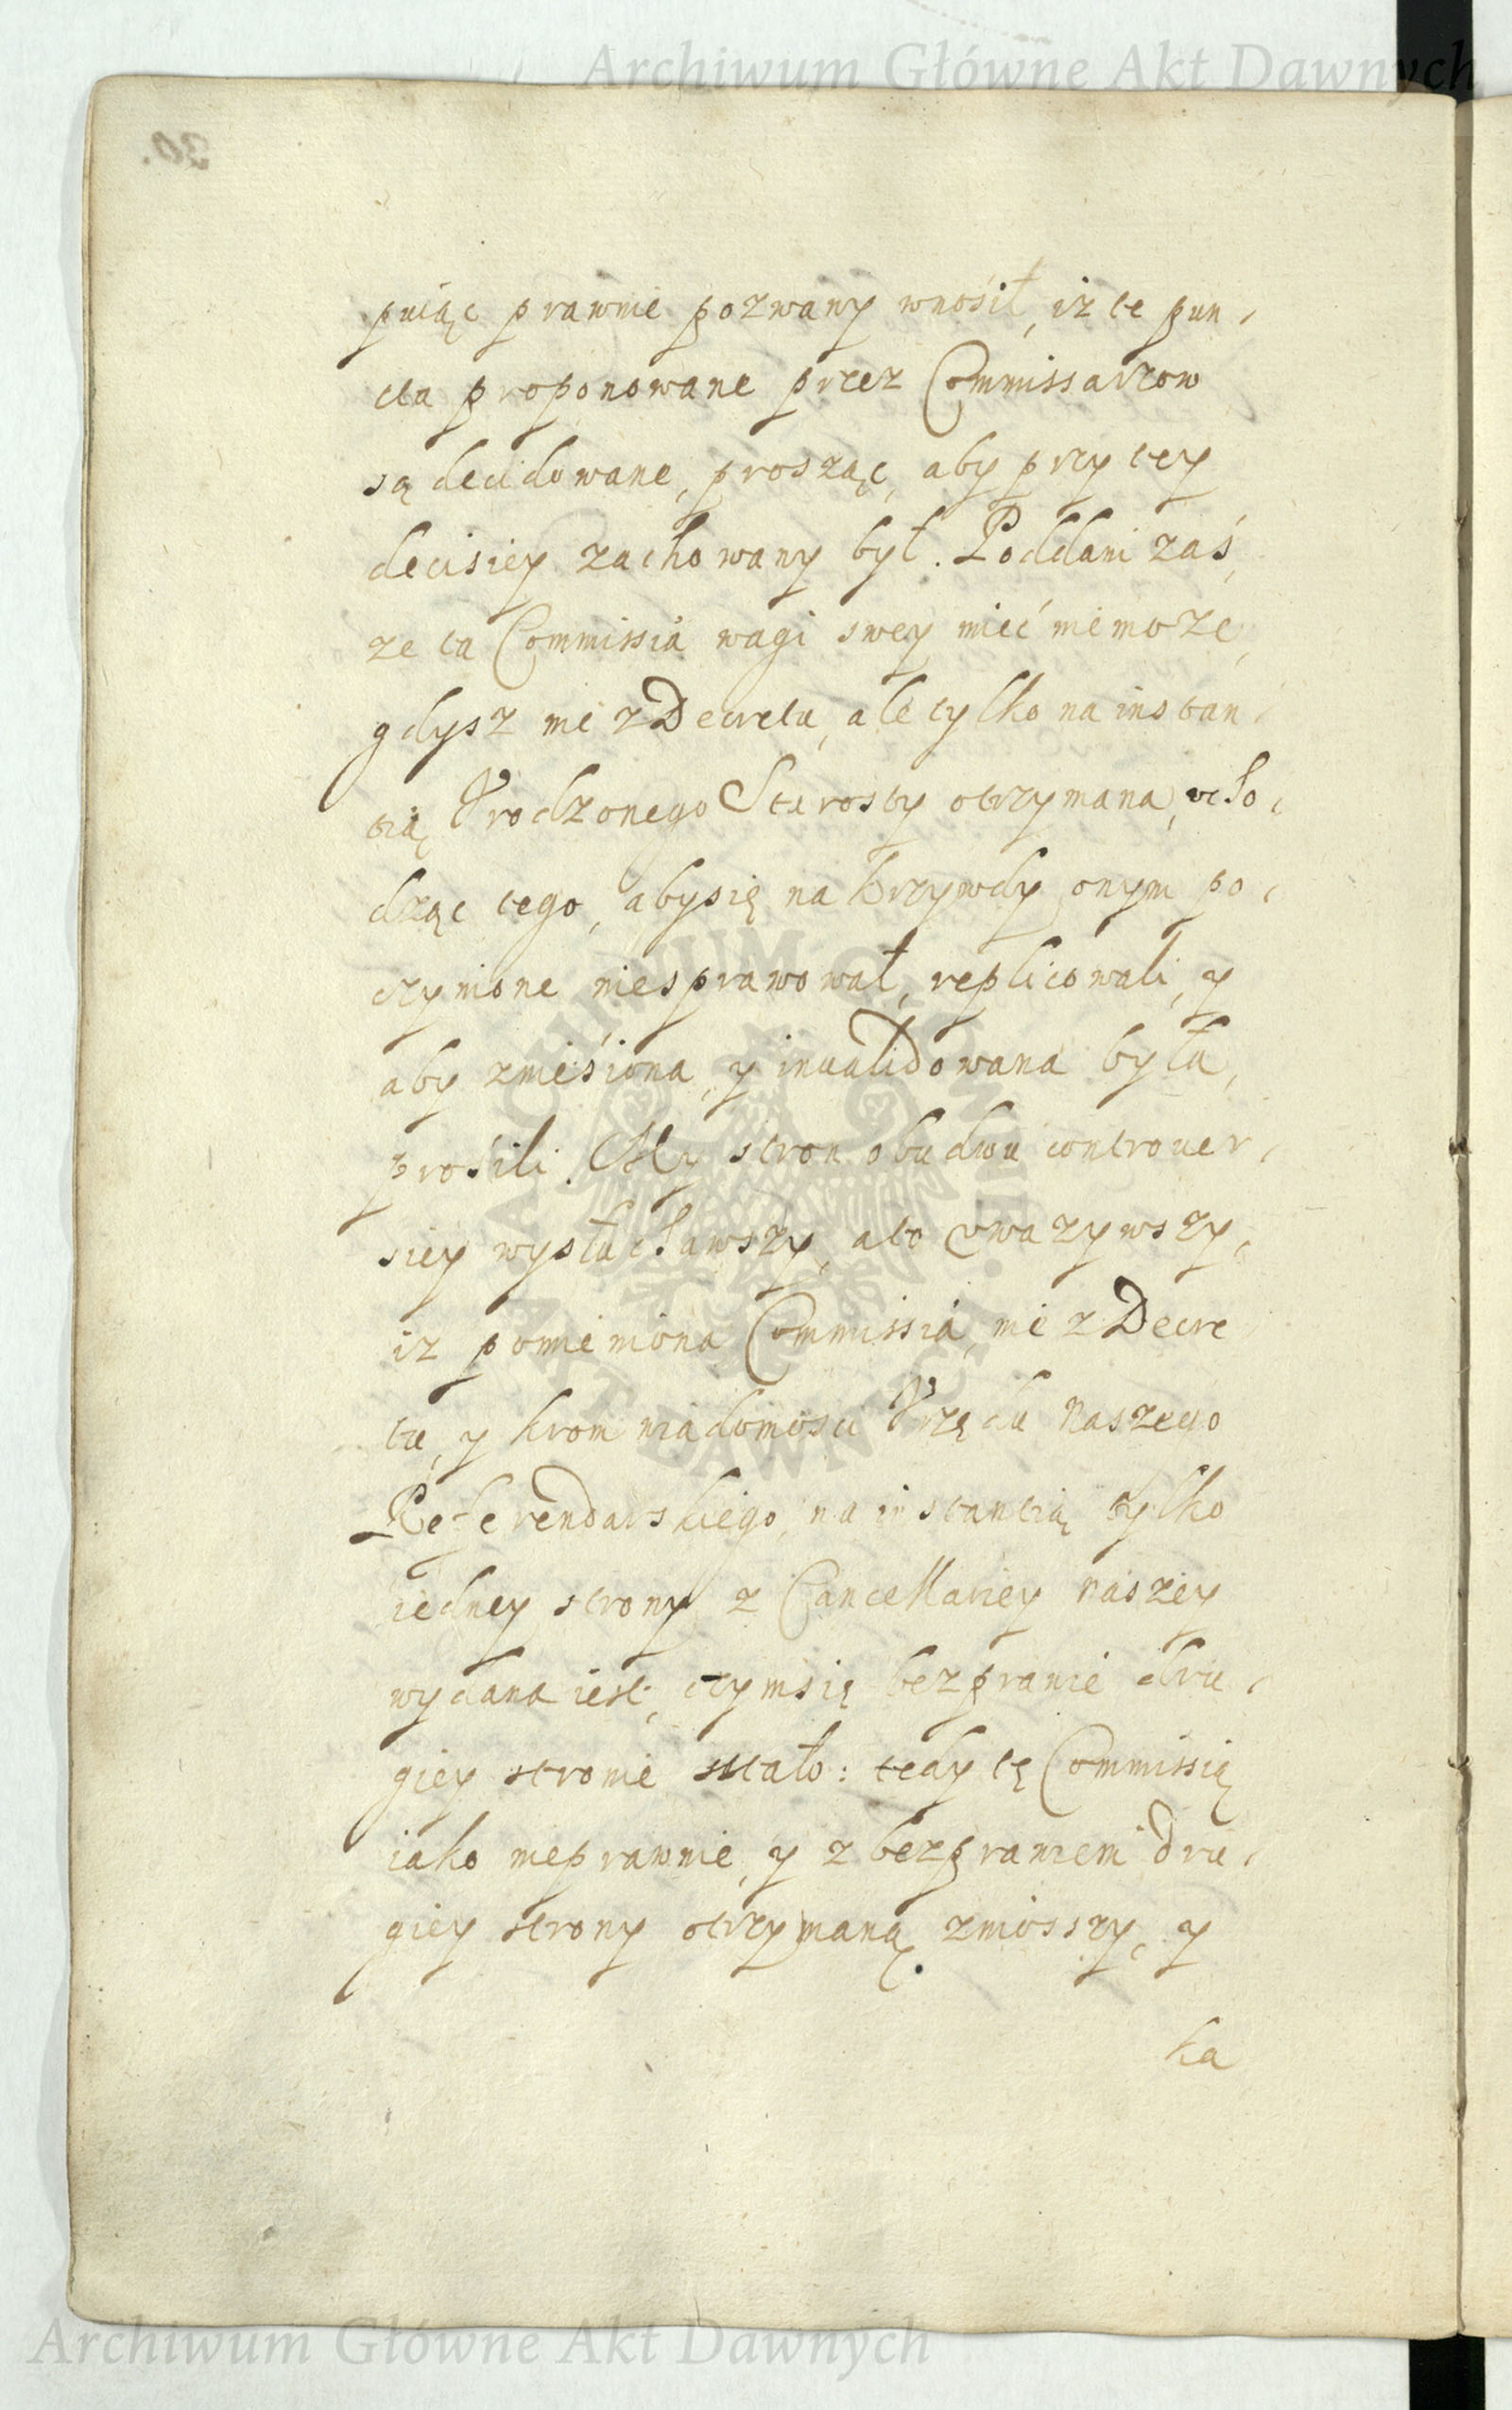 Archiwum Główne Akt Dawnych
30.
puiąc prawnie pozwany wnośił, iz te pun-
cta proponowane przez Commissarzow
są decidowane, prosząc, aby przy tey
decisiey zachowany był. Poddani zaś,
ze ta Commissia wagi swey mieć niemoze,
gdysz nie z Decretu, ale tylko na instan-
tią Vrodzonego Starosty otrzymana, vcho-
dząc tego, abysię na krzywdy onym po-
czynione niesprawował, replicowali, y
aby znieśiona, y inualidowana była,
prośili. My stron obudwu controuer-
siey wysłuchawszy, a to vwazywszy,
iz pomieniona Commissia, nie z Decre
tu, y krom wiadomości Vrzędu naszego
Referendarskiego, na instantią tylko
iedney strony z Cancellariey naszey
wydana iest, czymsię bezprawie dru-
giey stronie stało: tedy tę Commissią
iako nieprawnie, y z bezprawiem dru-
giey strony otrzymaną, zniosszy, y
ka
ARCHIWUM GŁÓWNE AKT DAWNYCH
Archiwum Główne Akt Dawnych